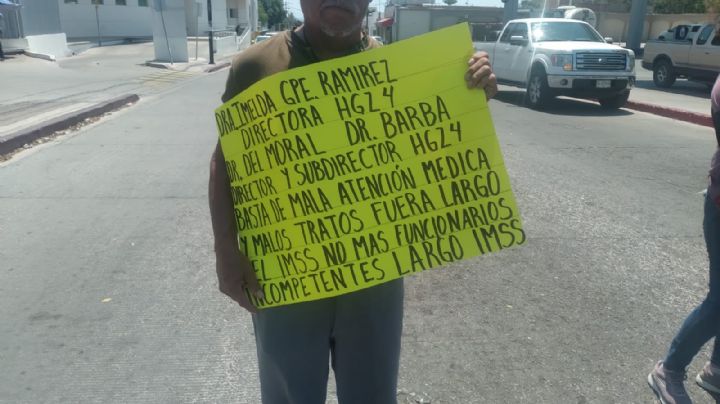 DRA. IMELDA GPE. RAMIREZ
DIRECTORA HGZ4
DR. DEL MORAL DR. BARBA
DIRECTOR Y SUBDIRECTOR HGZ4
BASTA DE MALA ATENCIÓN MEDICA
Y MALOS TRATOS FUERA LARGO
EL IMSS NO MAS FUNCIONARIOS
INCOMPETENTES LARGO IMSS